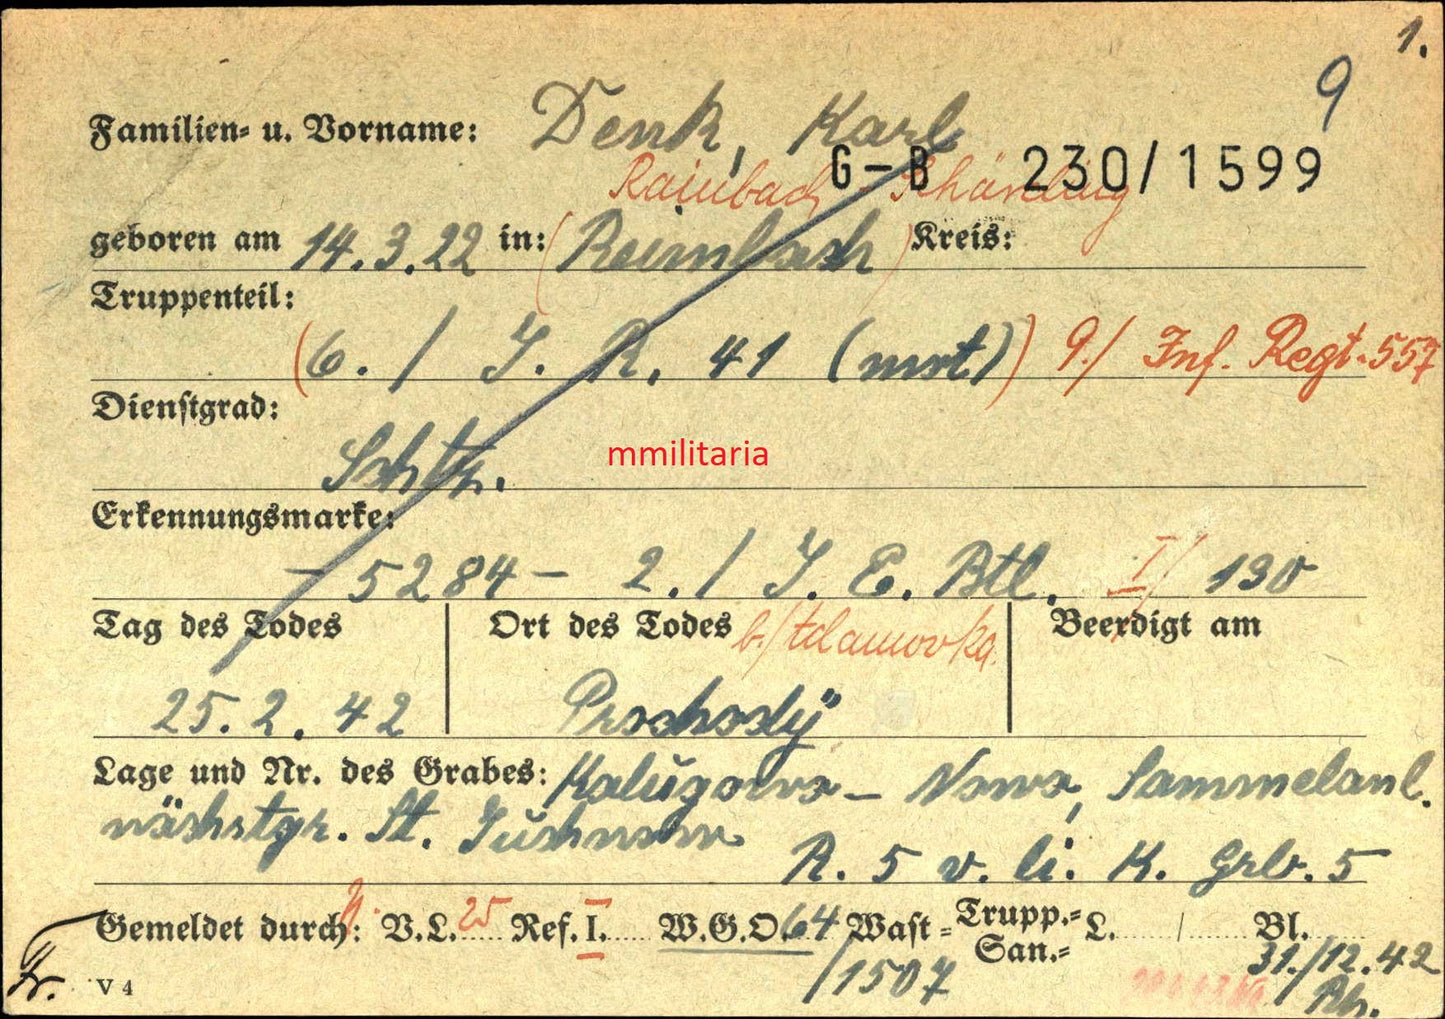 1.
9
Familien- u. Vorname: Denk, Karl
G-B 230/1599
Rainbach Schärding
geboren am 14.3.22 in: (Reimbach) Kreis:
Truppenteil:
(6. / J. R. 41 (mot)) 9./ Inf. Regt. 557
Dienstgrad:
Schtz.
mmilitaria
Erkennungsmarke:
- 5284 - 2. / J. E. Btl. I/ 130
Tag des Todes Ort des Todes b./ Adamovka Beerdigt am
25.2.42 Prochody
Lage und Nr. des Grabes: Kalugowo - Nowo, Sammelanl.
nächstgr. St. Juchnow
R. 5 v. li. K. Grb. 5
Gemeldet durch: V.L. 25 Ref. I. W.G.O. 64 Wast- Trupp.- L. / Bl.
San.-
/1507 31./12.42
V 4